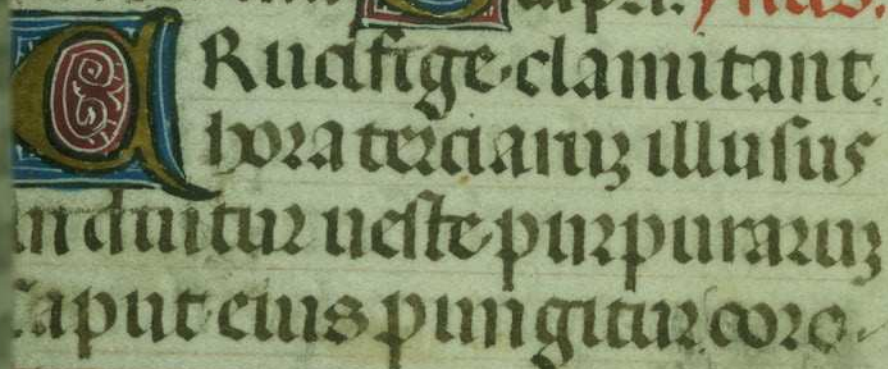 CRucifige clamitant.
hora terciaruꝫ illusus
induitur ueste purpuraruꝫ
Caput eius pungitur coro-